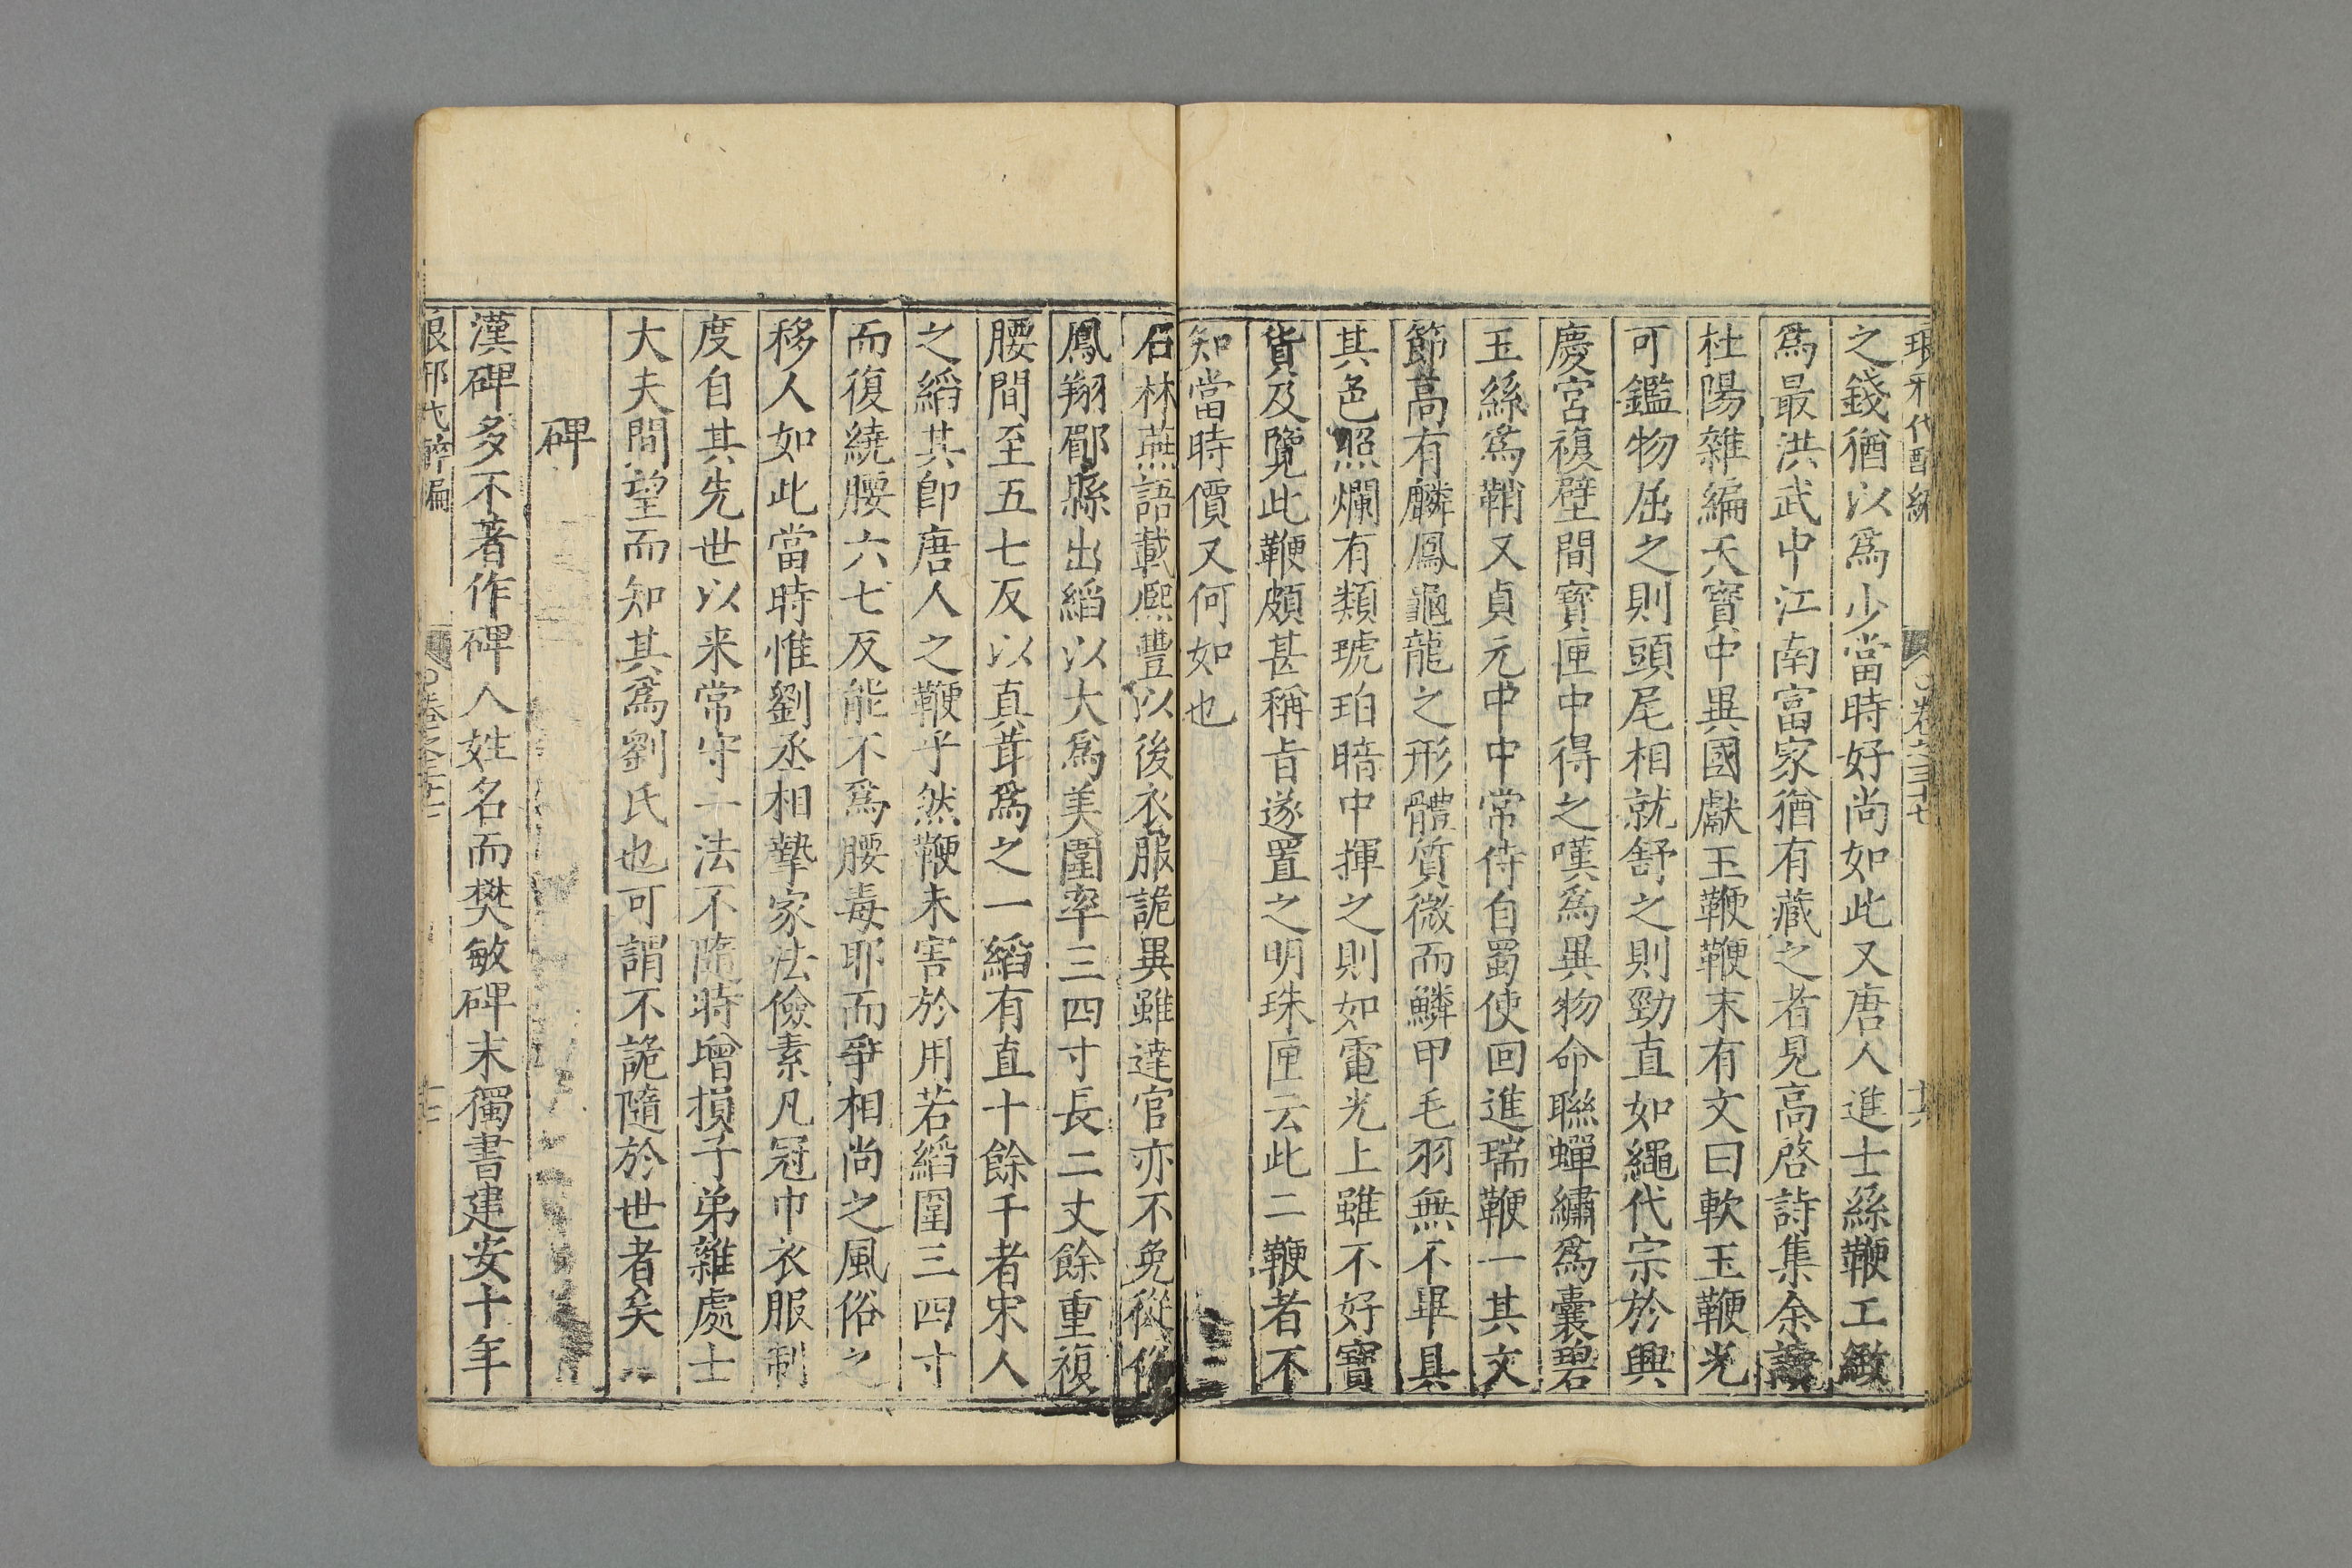 之錢猶以爲少當時好尚如此又唐人進士絲鞭工緻
爲最洪武中江南富家猶有藏之者見高啓詩集余讀
杜陽雜編天寶中異國獻玉鞭鞭末有文曰軟玉鞭光
可鑑物屈之則頭尾相就舒之則勁直如繩代宗於興
慶宮複壁間寶匣中得之嘆爲異物命聮蟬繡爲囊碧
玉絲爲鞘又貞元中中常侍自蜀使回進瑞鞭一其文
節高有麟鳳龜龍之形體質微而鱗甲毛羽無不畢具
其色照爛有類琥珀暗中揮之則如電光上雖不好寶
貨及覽此鞭頗甚稱旨遂置之明珠匣云此二鞭者不
知當時價又何如也
石林燕語載熈豐以後衣服詭異雖達官亦不免從俗
鳳翔郿縣出縚以大爲美圍率三四寸長二丈餘重複
腰間至五七反以真茸爲之一縚有直十餘千者宋人
之縚其即唐人之鞭乎然鞭未害於用若縚圍三四寸
而復繞腰六七反能不爲腰毒耶而爭相尚之風俗之
移人如此當時惟劉丞相摯家法儉素凡冠巾衣服制
度自其先世以来常守一法不隨時增損子弟雜處士
大夫間望而知其爲劉氏也可謂不詭隨於世者矣
碑
漢碑多不著作碑人姓名而樊敏碑末獨書建安十年
琅邪代醉編 卷之三十七 十七